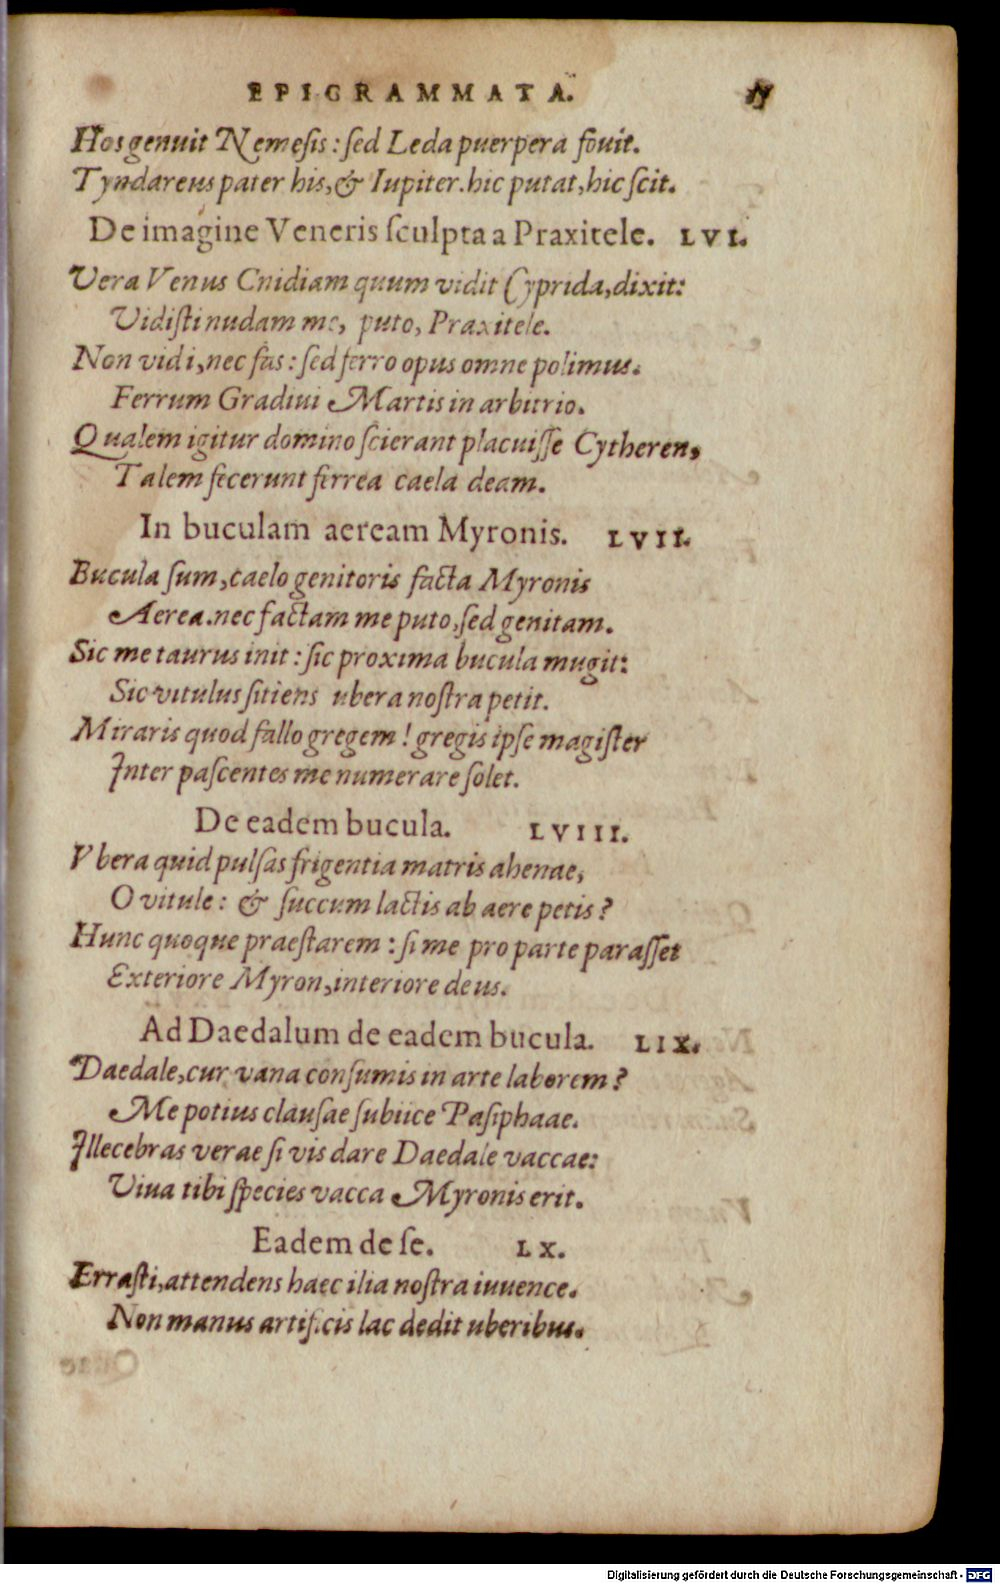 EPIGRAMMATA.
Hos genuit Nemesis: sed Leda puerpera fouit.
Tyndareus pater his, & Iupiter. hic putat, hic scit.
De imagine Veneris sculpta a Praxitele. LVI.
Vera Venus Cnidiam quum vidit Cyprida, dixit:
Vidisti nudam me, puto, Praxitele.
Non vidi, nec fas: sed ferro opus omne polimus.
Ferrum Gradiui Martis in arbitrio.
Qualem igitur domino scierant placuisse Cytheren,
Talem fecerunt ferrea caela deam.
In buculam aeream Myronis. LVII.
Bucula sum, caelo genitoris facta Myronis
Aerea. nec factam me puto, sed genitam.
Sic me taurus init: sic proxima bucula mugit:
Sic vitulus sitiens ubera nostra petit.
Miraris quod fallo gregem! gregis ipse magister
Inter pascentes me numerare solet.
De eadem bucula. LVIII.
Vbera quid pulsas frigentia matris ahenae,
O vitule: & succum lactis ab aere petis?
Hunc quoque praestarem: si me pro parte parasset
Exteriore Myron, interiore deus.
Ad Daedalum de eadem bucula. LIX.
Daedale, cur vana consumis in arte laborem?
Me potius clausae subiice Pasiphaae.
Illecebras verae si vis dare Daedale vaccae:
Viua tibi species vacca Myronis erit.
Eadem de se. LX.
Errasti, attendens haec ilia nostra iuuence.
Non manus artificis lac dedit uberibus.
Digitalisierung gefördert durch die Deutsche Forschungsgemeinschaft - DFG